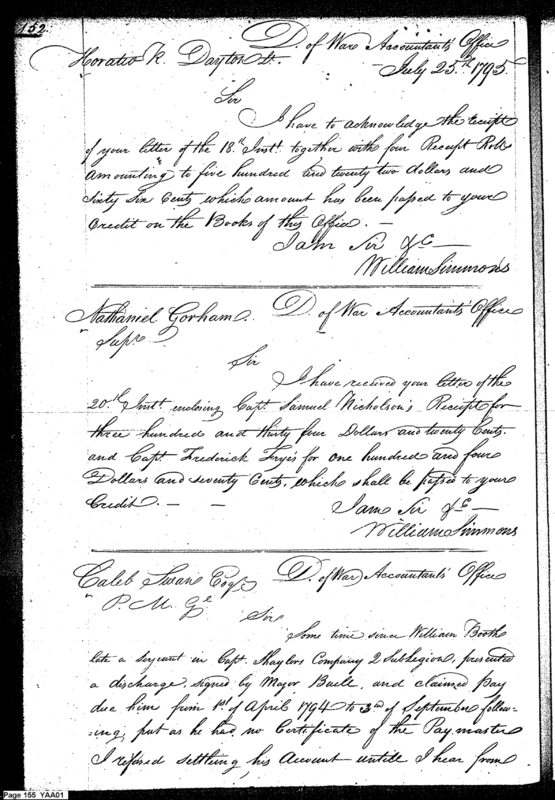 152
D. of War Accountants' Office
Horatio R. Dayton Lt. — July 25.th 1795.
Sir
I have to acknowledge the receipt
of your letter of the 18.th Inst. together with four Receipt Rolls
amounting to five hundred and twenty two dollars and
Sixty six Cents which amount has been passed to your
Credit on the Books of this Office. —
I am Sir &c —
William Simmons
Nathaniel Gorham. D. of War Accountants' Office
Supr
Sir
I have received your letter of the
20.th Inst. enclosing Capt. Samuel Nicholson's Receipt for
three hundred and thirty four Dollars and twenty Cents.
and Capt. Frederick Frye's for one hundred and four
Dollars and seventy Cents, which shall be passed to your
Credit. — —
I am Sir &c —
William Simmons
Caleb Swan Esqr. D. of War Accountants' Office
P. M. Gl
Sir
Some time since William Booth
late a serjeant in Capt. Shaylors Company 2 SubLegion, presented
a discharge, signed by Major Buell, and claimed pay
due him from 1st of April 1794 to 3rd of September follow-
-ing, but as he had no Certificate of the Paymaster
I refused settleing his Account untill I hear from
Page 155 YAA01